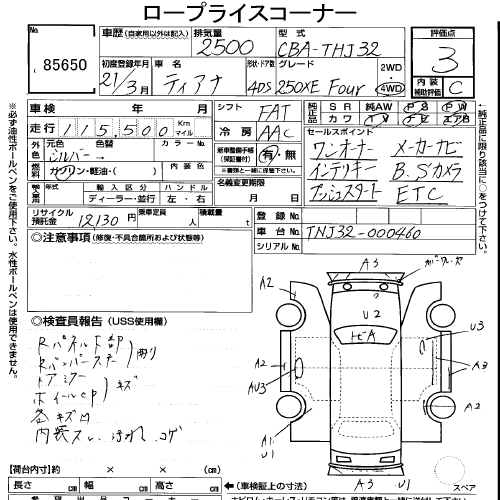 ロープライスコーナー
No.
85650
車歴 (自家用以外は記入)
排気量 2500
型式 CBA-TNJ32
評価点 3
初度登録年月 21/3月
車名 ティアナ
形状・ドア数 4DS
グレード 250XE Four
2WD
4WD
内装補助評価 C
車検 年 月
シフト FAT
走行 115,500 Km マイル
冷房 AAC
純正品 SR 純AW PS PW
カワ TV ナビ エアB
外色 元色 シルバー 色替 カラーNo.
新車整備手帳(保証書付) 有・無
※書類と一緒に保管下さい
セールスポイント
ワンオーナー メーカーナビ
インテリキー B,Sカメラ
プッシュスタート ETC
燃料 ガソリン・軽油・( ) 内装色
輸入車用 年式 輸入区分 ハンドル
ディーラー・並行 左・右
名義変更期限 月 日
リサイクル預託金 12130円
乗車定員 人
積載量 t
登録No.
車台No. TNJ32-000460
シリアルNo.
◎注意事項 (修復・不具合箇所および状態等)
◎検査員報告 (USS使用欄)
各キズ凹
A3
A2
U2
U3
A2
A3
AU3
A2
A1
U1
A3 U1
スペア
【荷台内寸】 × × (cm)
長さ cm 幅 cm 高さ cm
←(車検証上の寸法)
※必ず油性ボールペンをご使用下さい。水性ボールペンは使用できません。